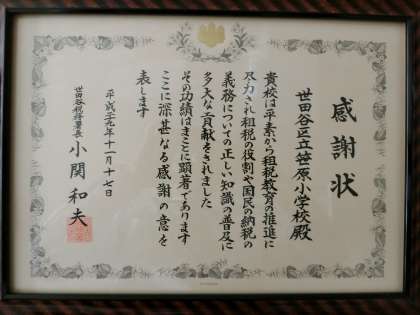 感謝状
世田谷区立笹原小学校殿
貴校は平素から租税教育の推進に
尽力され租税の役割や国民の納税の
義務についての正しい知識の普及に
多大な貢献をされました
その功績はまことに顕著であります
ここに深甚なる感謝の意を
表します
平成二十九年十一月十七日
世田谷税務署長 小関和夫